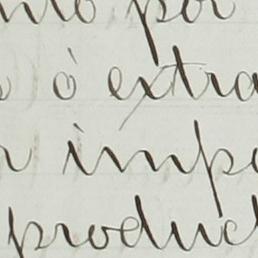 por
ó extra
imp
produc